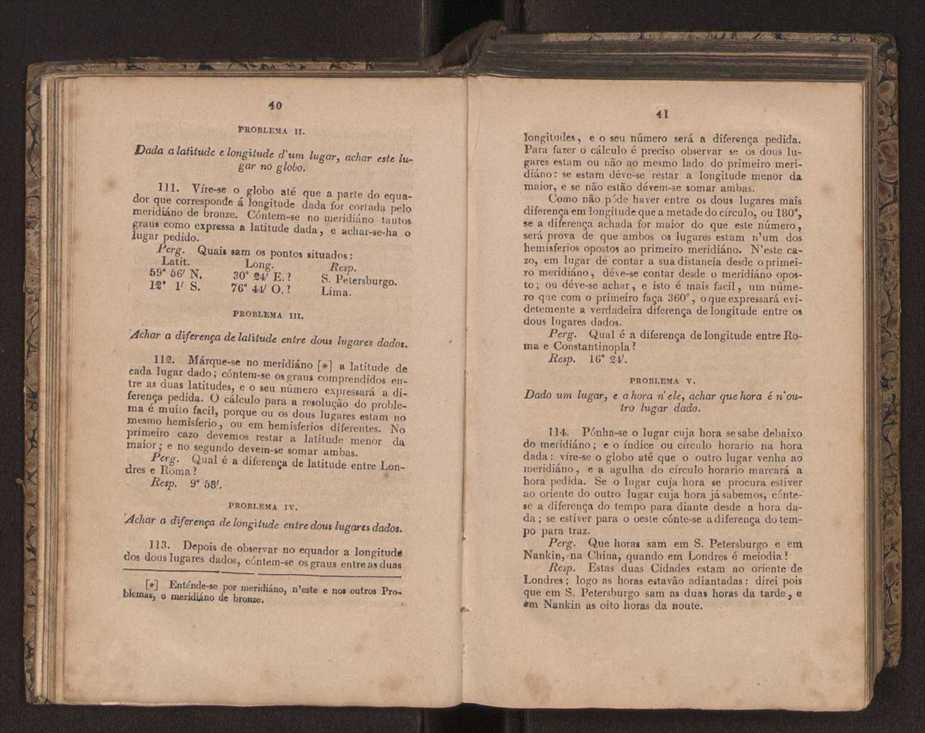 40
PROBLEMA II.
Dada a latitude e longitude d'um lugar, achar este lu-
gar no globo.
111. Víre-se o globo até que a parte do equa-
dor que corresponde á longitude dada for cortada pelo
meridiáno de bronze. Cóntem-se no meridiáno tantos
graus como expressa a latitude dada, e achar-se-ha o
lugar pedido.
Perg. Quais sam os pontos situados:
Latit. Long. Resp.
59° 56′ N. 30° 24′ E.? S. Petersburgo.
12° 1′ S. 76° 44′ O.? Lima.
PROBLEMA III.
Achar a diferença de latitude entre dous lugares dados.
112. Márque-se no meridiáno [*] a latitude de
cada lugar dado; cóntem-se os graus comprendidos en-
tre as duas latitudes, e o seu número expressará a di-
ferença pedida. O cálculo para a resolução do proble-
ma é muito facil, porque ou os dous lugares estam no
mesmo hemisferio, ou em hemisferios diferentes. No
primeiro cazo devemos restar a latitude menor da
maior; e no segundo devem-se somar ambas.
Perg. Qual é a diferença de latitude entre Lon-
dres e Roma?
Resp. 9° 58′.
PROBLEMA IV.
Achar a diferença de longitude entre dous lugares dados.
113. Depois de observar no equador a longitude
dos dous lugares dados, cóntem-se os graus entre as duas
[*] Enténde-se por meridiáno, n'este e nos outros Pro-
blemas, o meridiáno de bronze.
41
longitudes, e o seu número será a diferença pedida.
Para fazer o cálculo é preciso observar se os dous lu-
gares estam ou não ao mesmo lado do primeiro meri-
diáno: se estam déve-se restar a longitude menor da
maior, e se não estão dévem-se somar ambas.
Como não póde haver entre os dous lugares mais
diferença em longitude que a metade do círculo, ou 180°,
se a diferença achada for maior do que este número,
será prova de que ambos os lugares estam n'um dos
hemisferios opostos ao primeiro meridiáno. N'este ca-
zo, em lugar de contar a sua distancia desde o primei-
ro meridiáno, déve-se contar desde o meridiáno opos-
to; ou déve-se achar, e isto é mais facil, um núme-
ro que com o primeiro faça 360°, o que expressará evi-
detemente a verdadeira diferença de longitude entre os
dous lugares dados.
Perg. Qual é a diferença de longitude entre Ro-
ma e Constantinopla?
Resp. 16° 24′.
PROBLEMA V.
Dado um lugar, e a hora n'ele, achar que hora é n'ou-
tro lugar dado.
114. Pónha-se o lugar cuja hora se sabe debaixo
do meridiáno; e o índice ou círculo horario na hora
dada: víre-se o globo até que o outro lugar venha ao
meridiáno, e a agulha do círculo horario marcará a
hora pedida. Se o lugar cuja hora se procura estiver
ao oriente do outro lugar cuja hora já sabemos, cónte-
se a diferença do tempo para diante desde a hora da-
da; se estiver para o oeste cónte-se a diferença do tem-
po para traz.
Perg. Que horas sam em S. Petersburgo e em
Nankin, na China, quando em Londres é meiodia?
Resp. Estas duas Cidades estam ao oriente de
Londres; logo as horas estavão adiantadas: direi pois
que em S. Petersburgo sam as duas horas da tarde, e
em Nankin as oito horas da noute.